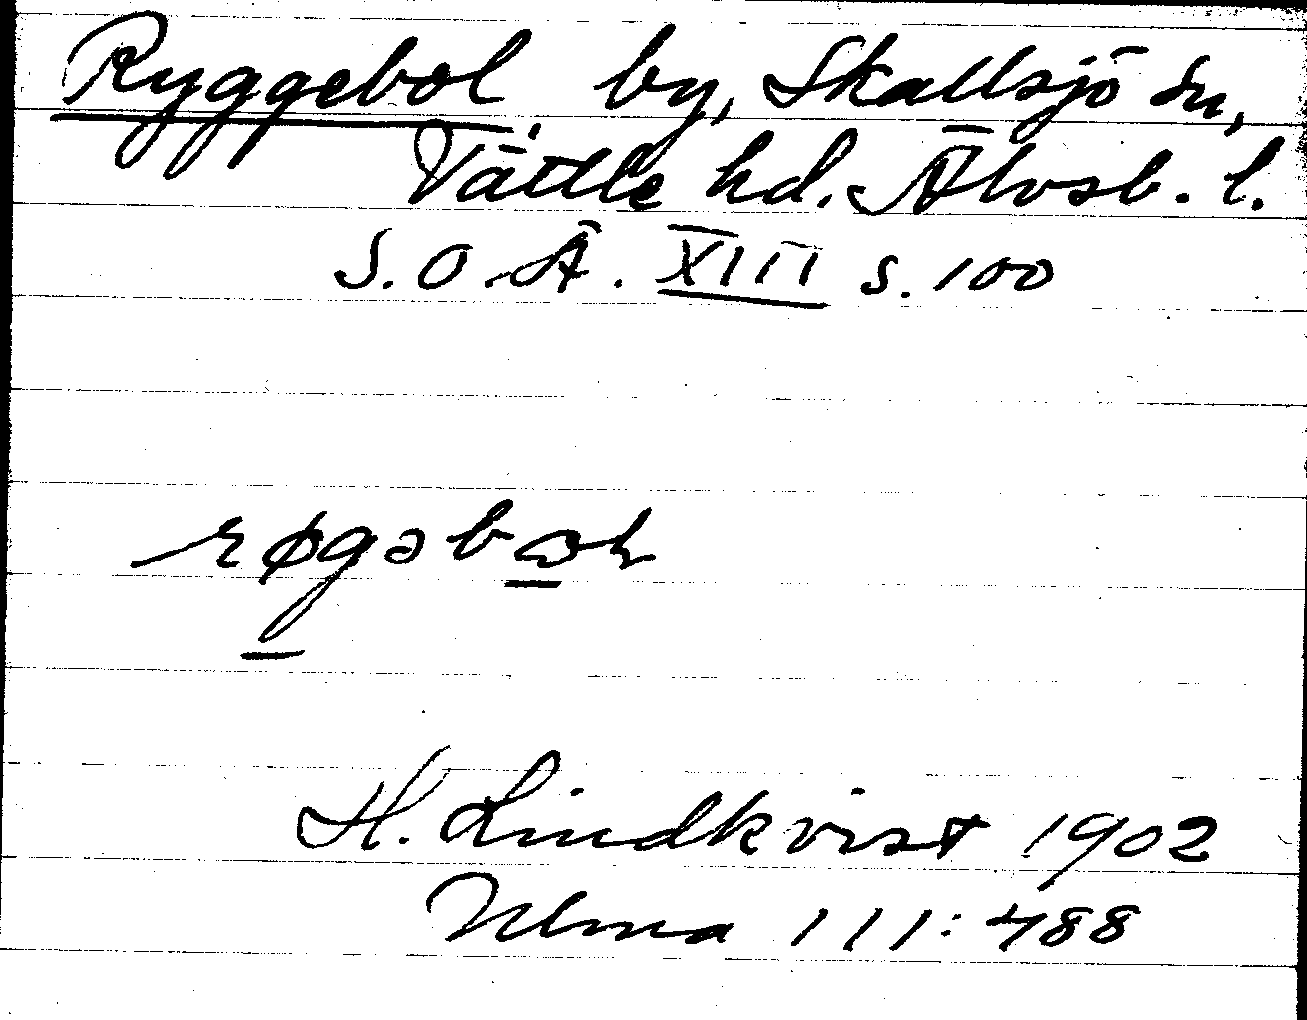 Ryggebol, by, Skallsjö sn,
Vättle hd. Älvsb. l.
S.O.Ä. XIII s. 100
H. Lindkvist 1902
Ulma 111:488